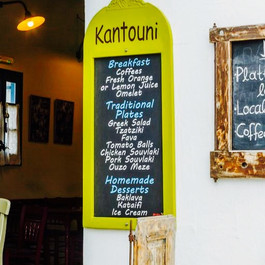 Kantouni
Breakfast
Coffees
Fresh Orange
or Lemon Juice
Omelet
Traditional
Plates
Greek Salad
Tzatziki
Fava
Tomato Balls
Chicken Souvlaki
Pork Souvlaki
Ouzo Meze
Homemade
Desserts
Baklava
Kataifi
Ice Cream
Plat
Loca
Coffe